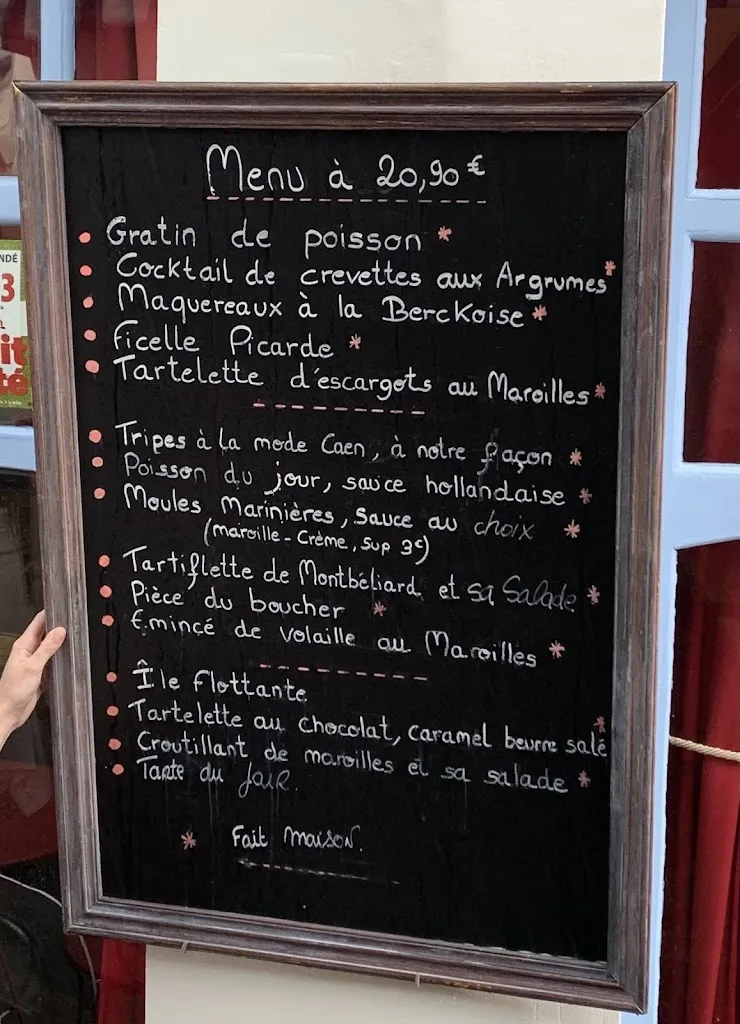 Menu à 20,90 €
• Gratin de poisson *
• Cocktail de crevettes aux Argrumes *
• Maquereaux à la Berckoise *
• Ficelle Picarde *
• Tartelette d'escargots au Maroilles *
• Tripes à la mode Caen, à notre façon *
• Poisson du jour, sauce hollandaise *
• Moules Marinières, Sauce au choix *
(maroille - Crème, sup 3€)
• Tartiflette de Montbéliard et sa Salade *
• Pièce du boucher *
• Emincé de volaille au Maroilles *
• Île Flottante
• Tartelette au chocolat, caramel beurre salé *
• Croutillant de maroilles et sa salade *
• Tarte du jour.
* Fait maison.
NDÉ
3
it
té